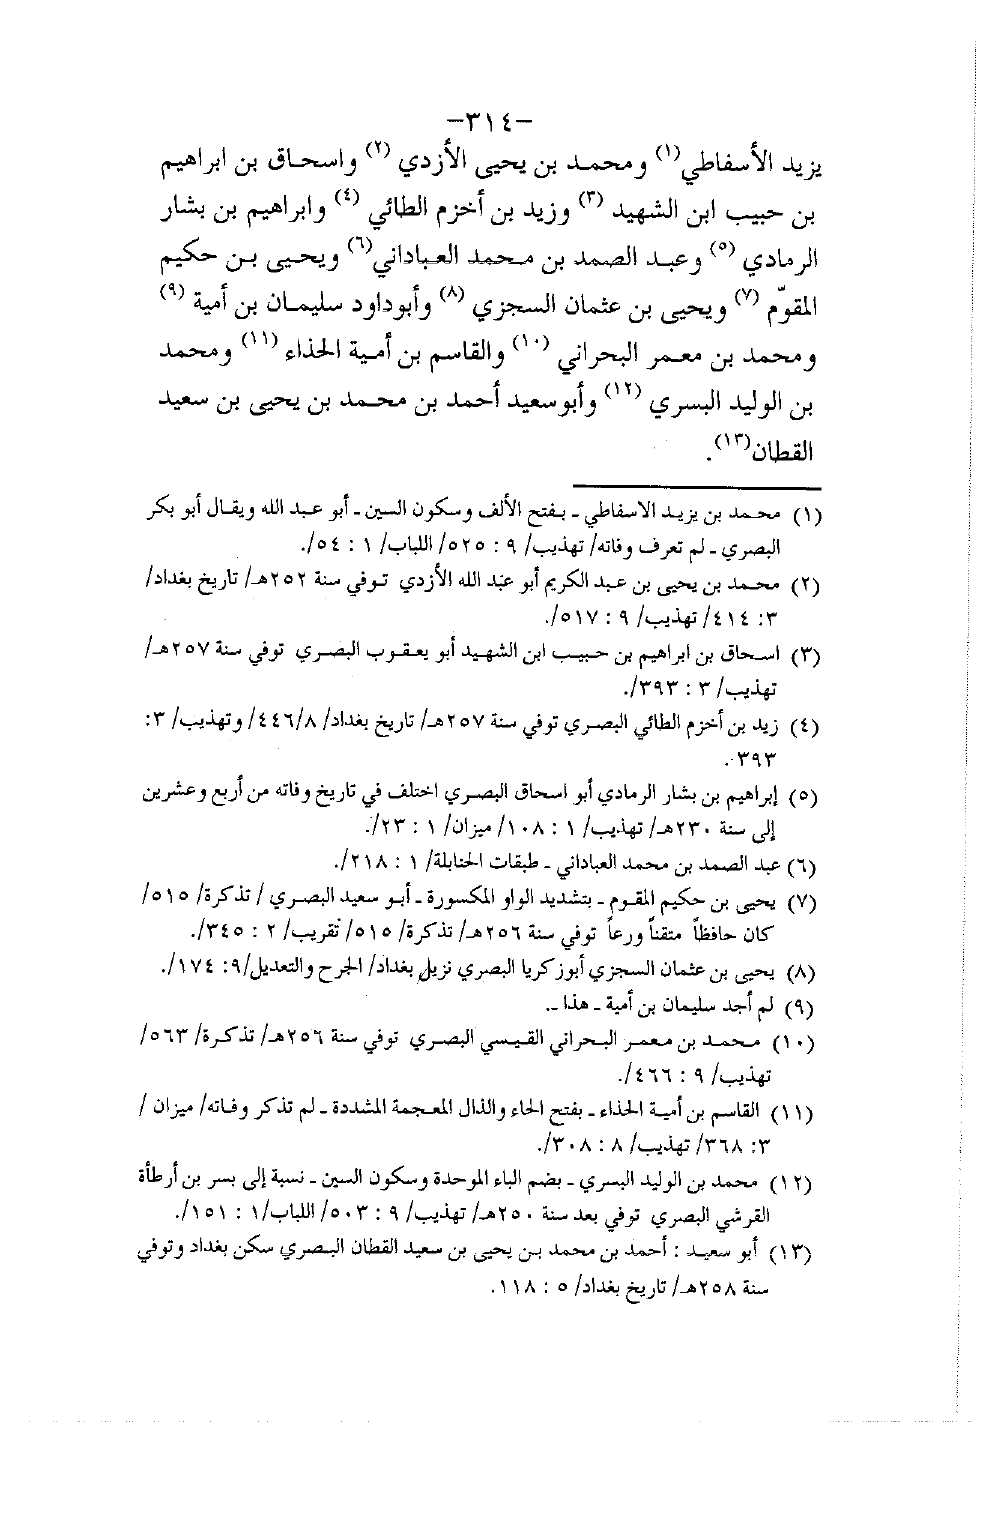 -٣١٤-
يزيد الأسفاطي(١) ومحمد بن يحيى الأزدي (٢) واسحاق بن ابراهيم
بن حبيب ابن الشهيد (٣) وزيد بن أخزم الطائي (٤) وابراهيم بن بشار
الرمادي (٥) وعبد الصمد بن محمد العباداني(٦) ويحيى بن حكيم
المقوّم (٧) ويحيى بن عثمان السجزي (٨) وأبوداود سليمان بن أمية (٩)
ومحمد بن معمر البحراني (١٠) والقاسم بن أمية الحذاء (١١) ومحمد
بن الوليد البسري (١٢) وأبوسعيد أحمد بن محمد بن يحيى بن سعيد
القطان(١٣).
(١) محمد بن يزيد الاسفاطي - بفتح الألف وسكون السين - أبو عبد الله ويقال أبو بكر
البصري - لم تعرف وفاته/ تهذيب/ ٩ : ٥٢٥/ اللباب/ ١ : ٥٤/.
(٢) محمد بن يحيى بن عبد الكريم أبو عبد الله الأزدي توفي سنة ٢٥٢هـ/ تاريخ بغداد/
٣: ٤١٤/ تهذيب/ ٩ : ٥١٧/.
(٣) اسحاق بن ابراهيم بن حبيب ابن الشهيد أبو يعقوب البصري توفي سنة ٢٥٧هـ/
تهذيب/ ٣ : ٣٩٣/.
(٤) زيد بن أخزم الطائي البصري توفي سنة ٢٥٧هـ/ تاريخ بغداد/ ٤٤٦/٨/ وتهذيب/ ٣:
٣٩٣.
(٥) إبراهيم بن بشار الرمادي أبو اسحاق البصري اختلف في تاريخ وفاته من أربع وعشرين
إلى سنة ٢٣٠هـ/ تهذيب/ ١ : ١٠٨/ ميزان/ ١ : ٢٣/.
(٦) عبد الصمد بن محمد العباداني - طبقات الحنابلة/ ١ : ٢١٨/.
(٧) يحيى بن حكيم المقوم - بتشديد الواو المكسورة - أبو سعيد البصري / تذكرة/ ٥١٥/
كان حافظاً متقناً ورعاً توفي سنة ٢٥٦هـ/ تذكرة/ ٥١٥/ تقريب/ ٢ : ٣٤٥/.
(٨) يحيى بن عثمان السجزي أبوزكريا البصري نزيل بغداد/ الجرح والتعديل/٩: ١٧٤/.
(٩) لم أجد سليمان بن أمية - هذا -.
(١٠) محمد بن معمر البحراني القيسي البصري توفي سنة ٢٥٦هـ/ تذكرة/ ٥٦٣/
تهذيب/ ٩ : ٤٦٦/.
(١١) القاسم بن أمية الحذاء - بفتح الحاء والذال المعجمة المشددة - لم تذكر وفاته/ ميزان /
٣: ٣٦٨/ تهذيب/ ٨ : ٣٠٨/.
(١٢) محمد بن الوليد البسري - بضم الباء الموحدة وسكون السين - نسبة إلى بسر بن أرطأة
القرشي البصري توفي بعد سنة ٢٥٠هـ/ تهذيب/ ٩ : ٥٠٣/ اللباب/١ : ١٥١/.
(١٣) أبو سعيد : أحمد بن محمد بن يحيى بن سعيد القطان البصري سكن بغداد وتوفي
سنة ٢٥٨هـ/ تاريخ بغداد/ ٥ : ١١٨.